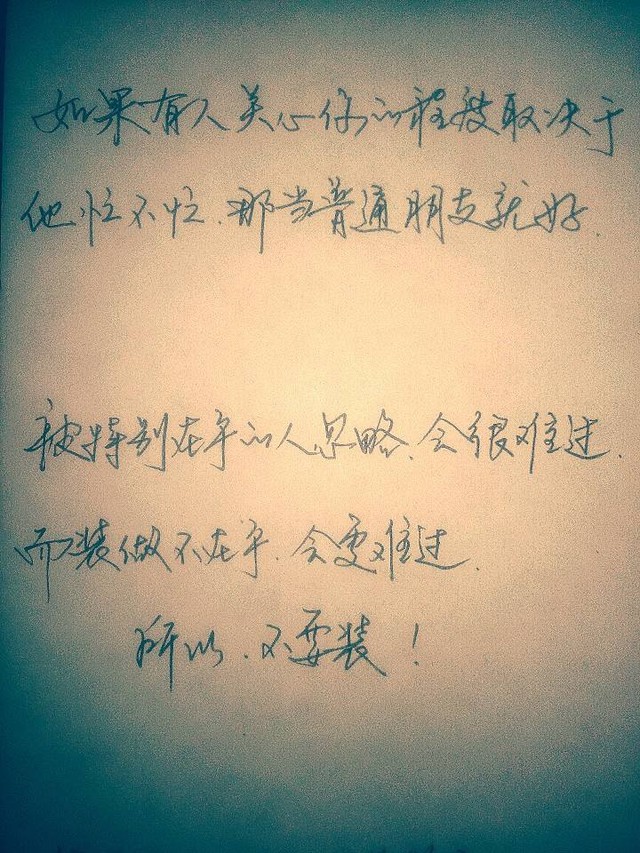 如果有人关心你的程度取决于
他忙不忙.那当普通朋友就好.
被特别在乎的人忽略.会很难过.
而装做不在乎.会更难过.
所以.不要装!